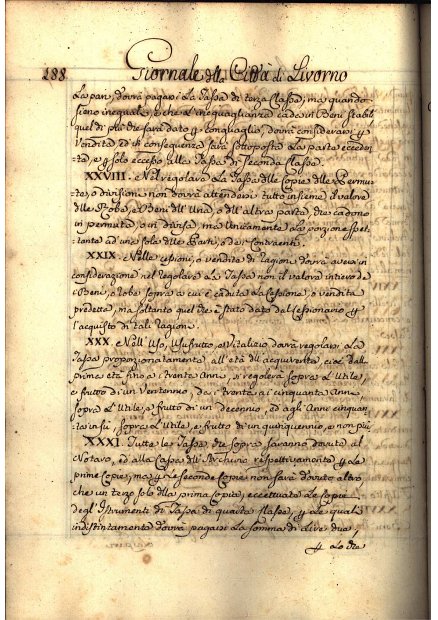 288. Giornale della Città di Livorno
La pari, dovrà pagarsi La Tassa di terza Classe; ma quando
siano ineguali, e che l'ineguaglianza cada in Beni Stabili
quel di più che sarà dato per conguaglio, dovrà considerarsi per
Vendita, ed in conseguenza sarà sottoposta La parte ecceden-
te, e per solo eccesso alla Tassa di Seconda Classe.
XXVIII. Nel regolare La Tassa delle Copie delle Permu-
te, o divisioni non dovrà attendersi tutto insieme il valore
delle Robe, e Beni dell'Una, o dell'altra parte, che cadono
in permuta, o in divisa, ma Unicamente a La porzione spet-
tante ad una sola delle Parti, o dei Contraenti.
XXIX. Nelle cessioni, o vendite di Ragioni dovrà aversi in
considerazione nel regolare La Tassa non il valore intiero de
i Beni, o robe sopra a cui è caduta La Cessione, o vendita
predetta, ma soltanto quel che è stato dato dal Cessionario per
l'acquisto di tali Ragioni.
XXX. Nell'Uso, Usufrutto, e Vitalizio dovrà regolarsi La
Tassa proporzionatamente all'età dell'acquirente, cioè dalla
prima età fino a i trenta Anni, si regolerà sopra L'Utile,
e frutto di un Ventennio, da i trenta ai cinquanta Anni
sopra L'Utile, e frutto di un decennio, ed agli Anni cinquan-
ta in sù, sopra L'Utile, e frutto di un quinquennio, e non più
XXXI. Tutte le Tasse che sopra saranno dovute al
Notaro, ed alla Cassa dell'Archivio respettivamente per Le
prime Copie; ma per Le seconde Copie non sarà dovuto altro
che un terzo solo della prima Copia, eccettuate Le Copie
degl'Istrumenti di Tassa di quarta Classe, per Le quali
indistintamente dovrà pagarsi La somma di Lire due,
Lo che